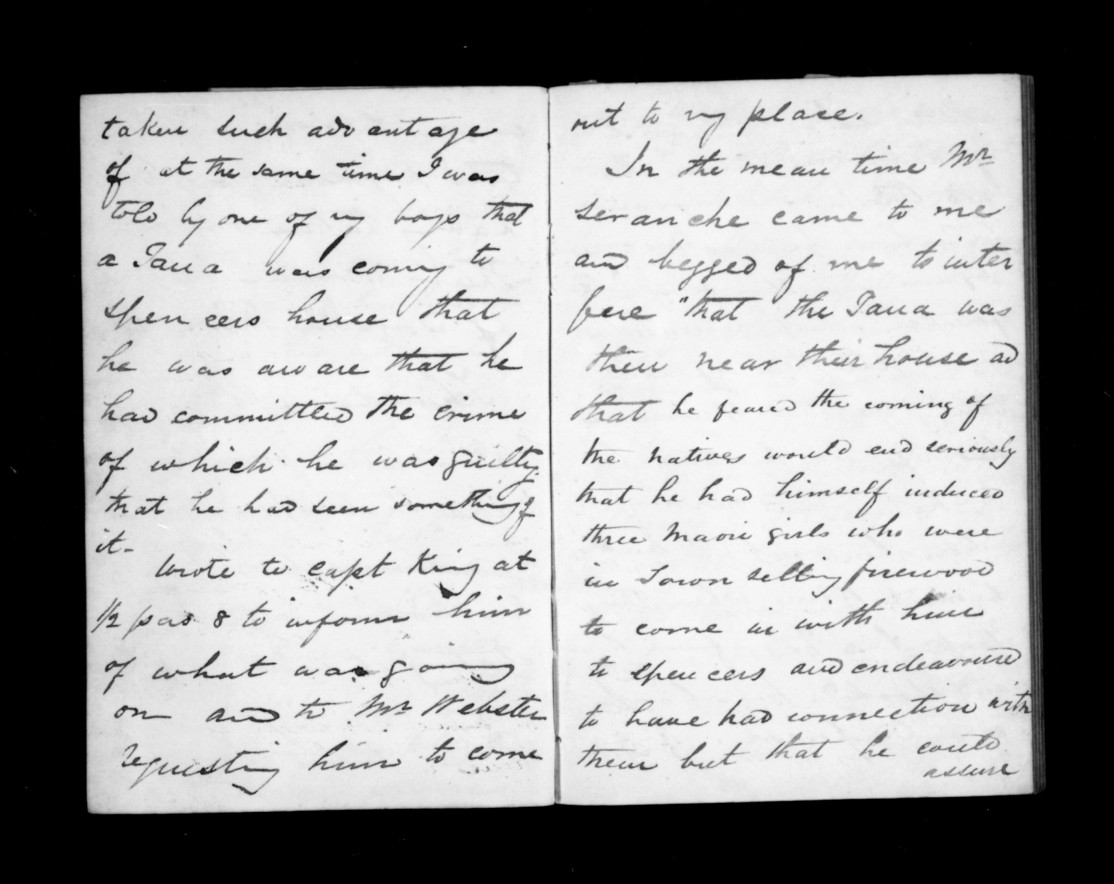 taken such advantage
of at the same time I was
told by one of my boys that
a Taua was coming to
Spencers house that
he was aware that he
had committed the crime
of which he was guilty
that he had seen something of
it -
Wrote to Capt King at
1/2 pas 8 to inform him
of what was going
on and to Mr Webster
requesting him to come
out to my place.
In the mean time Mr
Seranche came to me
and begged of me to inter
fere "that the Taua was
then near their house ad
that he feared the coming of
the natives would end seriously
that he had himself induced
three Maori girls who were
in Town selling firewood
to come in with him
to Spencers and endeavoured
to have had connection with
them but that he could
assure